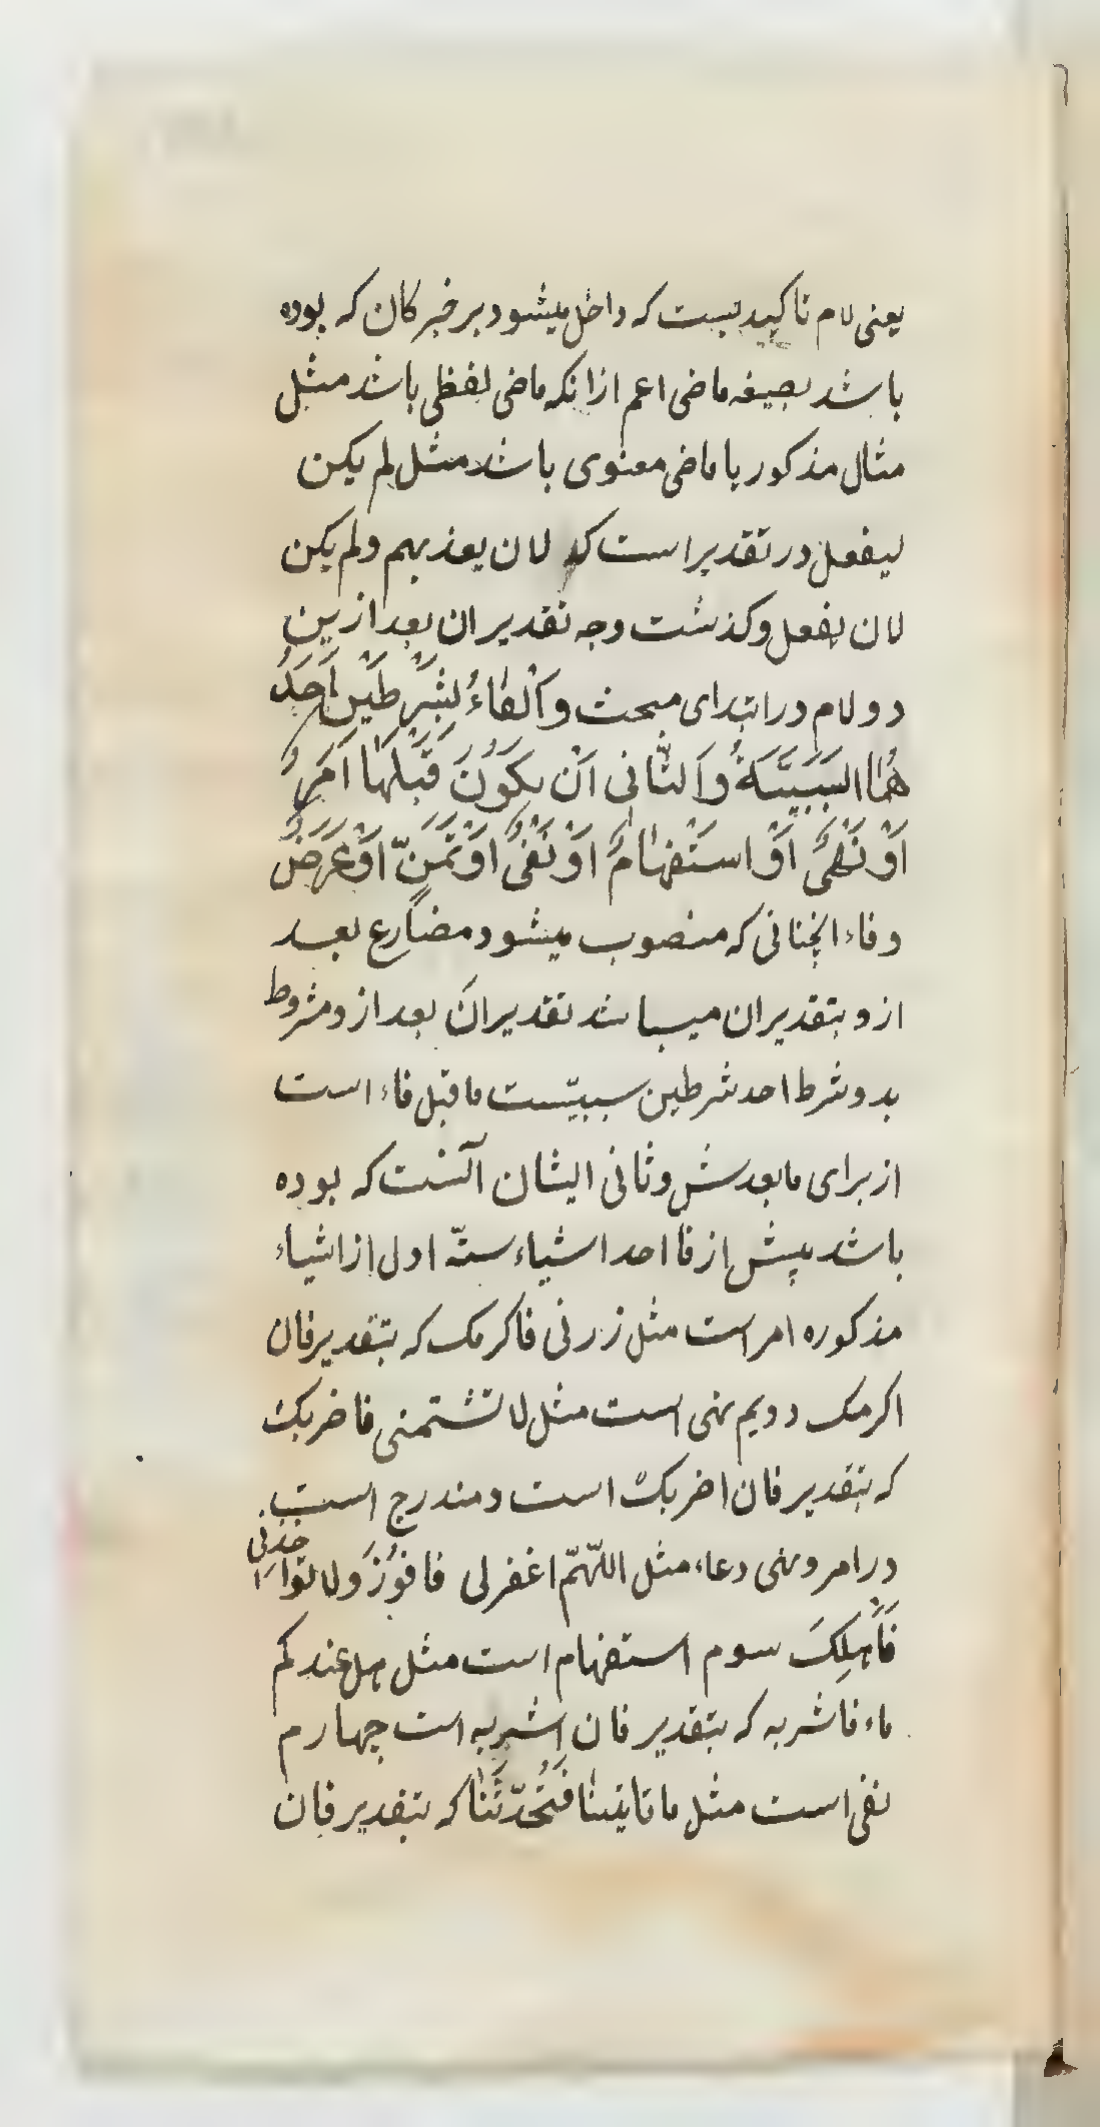 یعنی لام تاکیدیست که داخل میشود بر خبر کان که بوده
باشد بصیغه ماضی اعم ازانکه ماضی لفظی باشد مثل
مثال مذکور یا ماضی معنوی باشد مثل لم یکن
لیفعل در تقدیر است که لان یعذبهم ولم یکن
لان یفعل وکذشت وجه تقدیر ان بعد ازین
دو لام در ابتدای مبحث وَالْفاءُ بِشَرْطَیْنِ اَحَدُ
هُمَا السَّبَبِیَّةُ وَالثّانی اَنْ یَکُونَ قَبْلَهَا اَمْرٌ
اَوْ نَهْیٌ اَوْ اسْتِفْهامٌ اَوْ نَفْیٌ اَوْ تَمَنٍّ اَوْ عَرَضٌ
وفاء الچنانی که منصوب میشود مضارع بعد
ازو بتقدیر ان میباشد تقدیر ان بعد ازو مشروط
بدو شرط احد شرطین سببیّت ما قبل فاء است
از برای ما بعدش وثانی ایشان آنست که بوده
باشد پیش از فا احد اشیاء ستّه اول از اشیاء
مذکوره امر است مثل زرنی فاکرمک که بتقدیر فان
اکرمک دویم نهی است مثل لا تشتمنی فاضربک
که بتقدیر فان اضربک است ومندرج است
در امر ونهی دعاء مثل اللّهمّ اغفرلی فافُوزَ ولا تؤاخذنی
فَاَهلِکَ سوم استفهام است مثل هل عندکم
ماء فاشربه که بتقدیر فان اشربه است چهارم
نفی است مثل ما تاتینا فَتُحَدّثَنا که بتقدیر فان